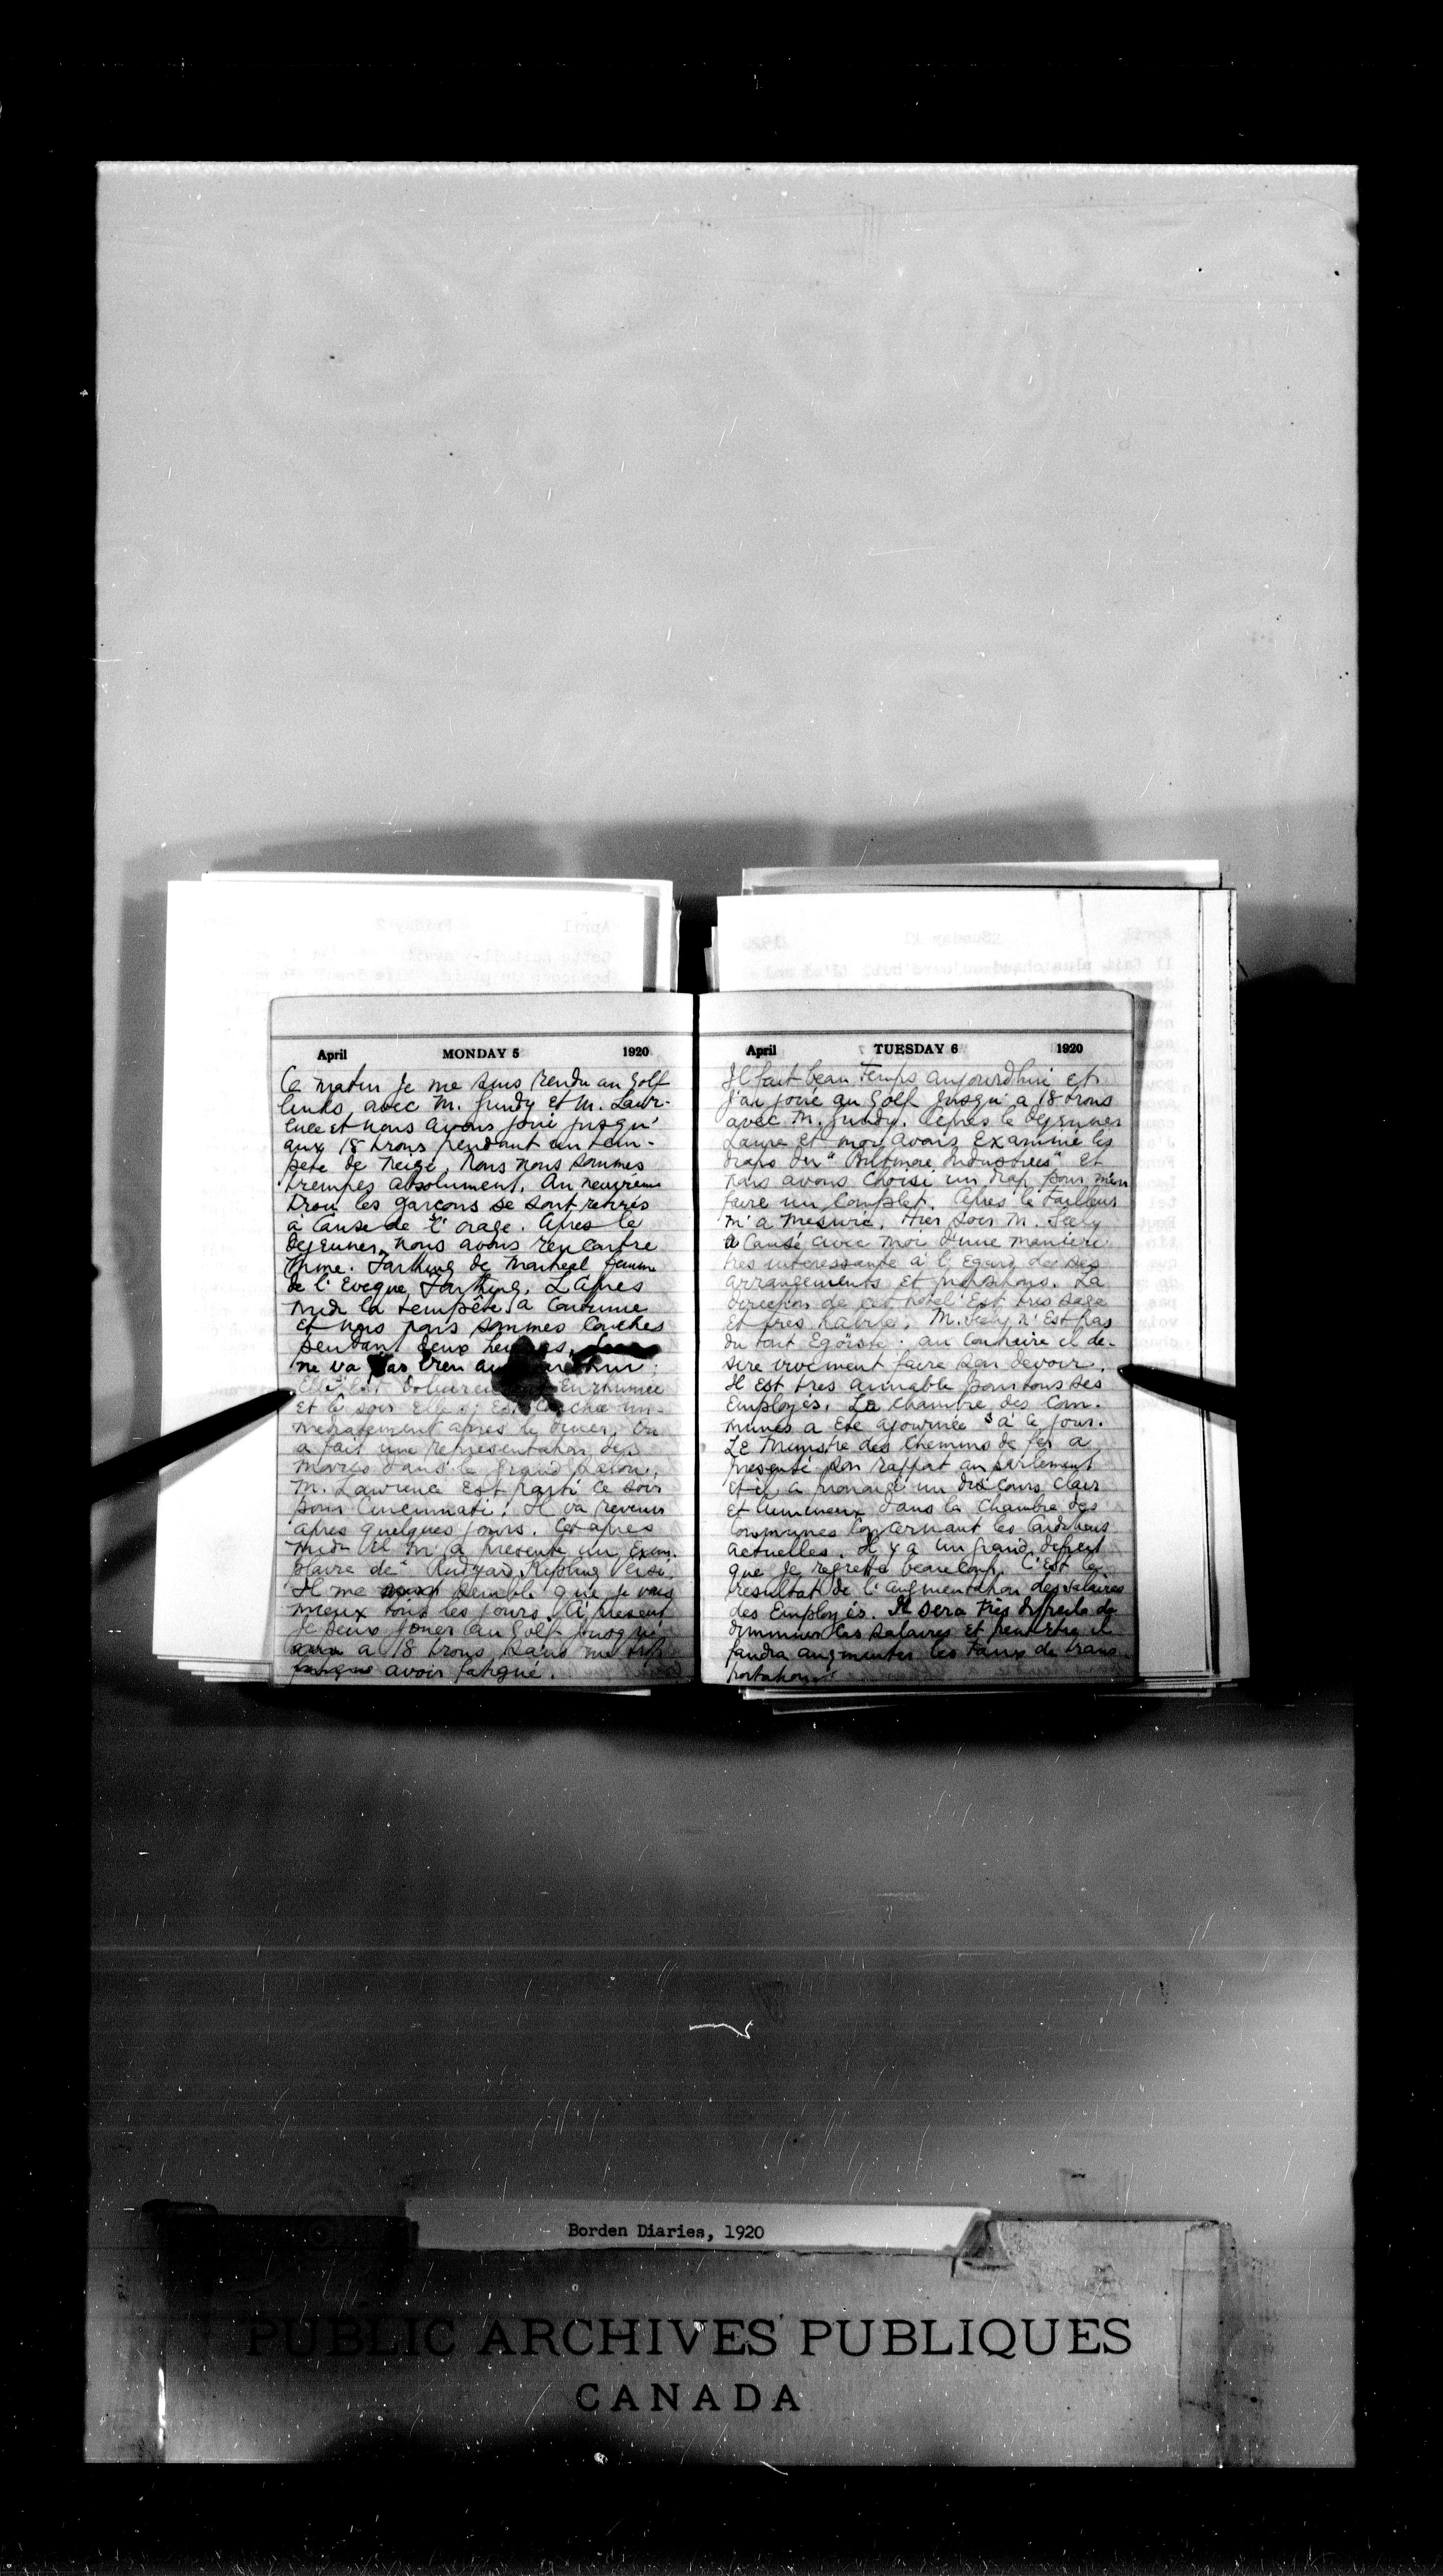 April MONDAY 5 1920
Ce matin je me suis rendu au Golf
links avec M. Gundy et M. Lawr-
ence et nous avons joué jusqu'
aux 18 trous pendant un tem-
pete de neige. Nous nous sommes
trempés absolument. Au neuvieme
trou les garcons se sont retirés
à cause de l'orage. Apres le
dejeuner nous avons rencontre
Mme. Farthing de Montreal femme
de l'Eveque Farthing. L'apres
midi la tempête a continué
et nous sommes couchés
pendant deux heures.
ne va pas bien
Elle est enrhumée
et le soir elle couchée im-
mediatement apres le diner. On
a fait une representation des
movies dans le grand salon.
M. Lawrence est parti ce soir
pour Cincinnati. Il va revenir
apres quelques jours. Cet apres
midi il m'a presenté un exem-
plaire de "Rudyard Kipling Verse".
Il me semble que je vais
mieux tous les jours. A present
je peux jouer au Golf jusqu'
a 18 trous sans me
avoir fatigué.
April TUESDAY 6 1920
Il fait beau temps aujourdhui et
j'ai joué au Golf jusqu'a 18 trous
avec M. Gundy. Apres le dejeuner
Laura et moi avons examiné les
draps des "Biltmore Industries" et
nous avons choisi un drap pour m'en
faire un complet. Apres le tailleur
m'a mesuré. Hier soir M. Seely
a causé avec moi d'une maniere
tres interessante à l'egard de ses
arrangements et propositions. La
direction de cet hotel est tres sage
et tres habile. M. Seely n'est pas
du tout egoiste: au contraire il de-
sire vivement faire son devoir.
Il est tres aimable pour tous ses
employés. La chambre des Com-
munes a eté ajournée à ce jour.
Le Ministre des Chemins de fer a
presenté son rapport au parlement
et il a prononcé un discours clair
et lumineux dans la Chambre des
Communes concernant les conditions
actuelles. Il y a un grand deficit
que je regrette beaucoup. C'est le
resultat de l'augmentation des salaires
des employés. Il sera très difficile de
diminuer les salaires et peut etre il
faudra augmenter les taux de trans-
portation.
Borden Diaries, 1920
PUBLIC ARCHIVES PUBLIQUES
CANADA